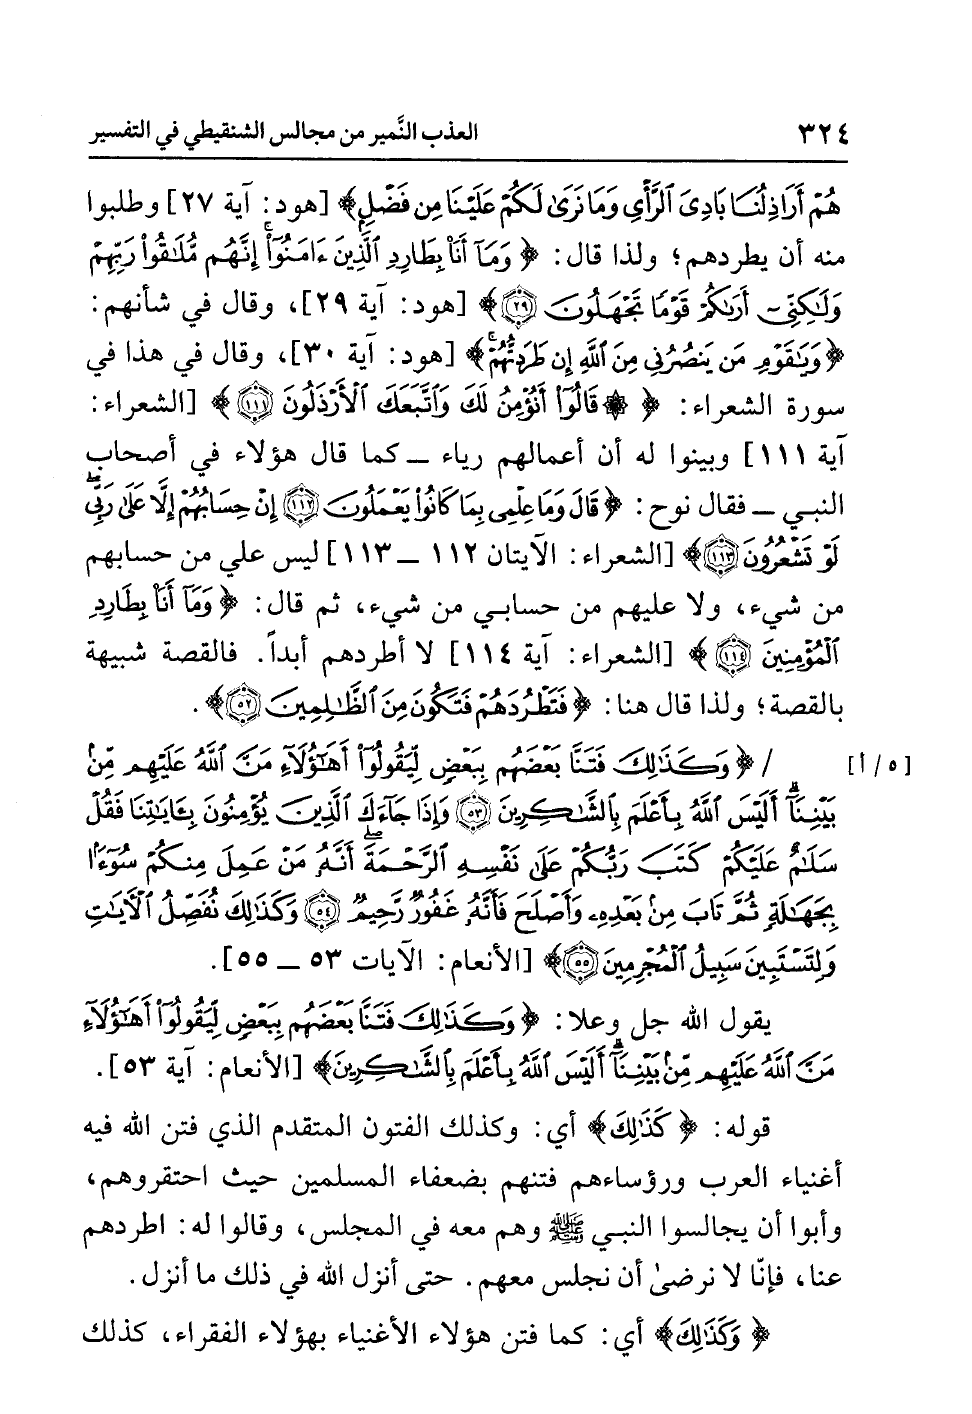 ٣٢٤ العذب النَّمير من مجالس الشنقيطي في التفسير
هُمْ أَرَاذِلُنَا بَادِىَ ٱلرَّأْىِ وَمَا نَرَىٰ لَكُمْ عَلَيْنَا مِن فَضْلٍ﴾ [هود: آية ٢٧] وطلبوا
منه أن يطردهم؛ ولذا قال: ﴿وَمَآ أَنَا۠ بِطَارِدِ ٱلَّذِينَ ءَامَنُوٓا۟ ۚ إِنَّهُم مُّلَـٰقُوا۟ رَبِّهِمْ
وَلَـٰكِنِّىٓ أَرَىٰكُمْ قَوْمًا تَجْهَلُونَ ٢٩﴾ [هود: آية ٢٩]، وقال في شأنهم:
﴿وَيَـٰقَوْمِ مَن يَنصُرُنِى مِنَ ٱللَّهِ إِن طَرَدتُّهُمْ ۚ﴾ [هود: آية ٣٠]، وقال في هذا في
سورة الشعراء: ﴿۞ قَالُوٓا۟ أَنُؤْمِنُ لَكَ وَٱتَّبَعَكَ ٱلْأَرْذَلُونَ ١١١﴾ [الشعراء:
آية ١١١] وبينوا له أن أعمالهم رياء ــ كما قال هؤلاء في أصحاب
النبي ــ فقال نوح: ﴿قَالَ وَمَا عِلْمِى بِمَا كَانُوا۟ يَعْمَلُونَ ١١٢ إِنْ حِسَابُهُمْ إِلَّا عَلَىٰ رَبِّى ۖ
لَوْ تَشْعُرُونَ ١١٣﴾ [الشعراء: الآيتان ١١٢ ــ ١١٣] ليس علي من حسابهم
من شيء، ولا عليهم من حسابي من شيء، ثم قال: ﴿وَمَآ أَنَا۠ بِطَارِدِ
ٱلْمُؤْمِنِينَ ١١٤﴾ [الشعراء: آية ١١٤] لا أطردهم أبداً. فالقصة شبيهة
بالقصة؛ ولذا قال هنا: ﴿فَتَطْرُدَهُمْ فَتَكُونَ مِنَ ٱلظَّـٰلِمِينَ ٥٢﴾.
[٥/أ] / ﴿وَكَذَٰلِكَ فَتَنَّا بَعْضَهُم بِبَعْضٍ لِّيَقُولُوٓا۟ أَهَـٰٓؤُلَآءِ مَنَّ ٱللَّهُ عَلَيْهِم مِّنۢ
بَيْنِنَآ ۗ أَلَيْسَ ٱللَّهُ بِأَعْلَمَ بِٱلشَّـٰكِرِينَ ٥٣ وَإِذَا جَآءَكَ ٱلَّذِينَ يُؤْمِنُونَ بِـَٔايَـٰتِنَا فَقُلْ
سَلَـٰمٌ عَلَيْكُمْ ۖ كَتَبَ رَبُّكُمْ عَلَىٰ نَفْسِهِ ٱلرَّحْمَةَ ۖ أَنَّهُۥ مَنْ عَمِلَ مِنكُمْ سُوٓءًۢا
بِجَهَـٰلَةٍ ثُمَّ تَابَ مِنۢ بَعْدِهِۦ وَأَصْلَحَ فَأَنَّهُۥ غَفُورٌ رَّحِيمٌ ٥٤ وَكَذَٰلِكَ نُفَصِّلُ ٱلْـَٔايَـٰتِ
وَلِتَسْتَبِينَ سَبِيلُ ٱلْمُجْرِمِينَ ٥٥﴾ [الأنعام: الآيات ٥٣ ــ ٥٥].
يقول الله جل وعلا: ﴿وَكَذَٰلِكَ فَتَنَّا بَعْضَهُم بِبَعْضٍ لِّيَقُولُوٓا۟ أَهَـٰٓؤُلَآءِ
مَنَّ ٱللَّهُ عَلَيْهِم مِّنۢ بَيْنِنَآ ۗ أَلَيْسَ ٱللَّهُ بِأَعْلَمَ بِٱلشَّـٰكِرِينَ﴾ [الأنعام: آية ٥٣].
قوله: ﴿كَذَٰلِكَ﴾ أي: وكذلك الفتون المتقدم الذي فتن الله فيه
أغنياء العرب ورؤساءهم فتنهم بضعفاء المسلمين حيث احتقروهم،
وأبوا أن يجالسوا النبي ﷺ وهم معه في المجلس، وقالوا له: اطردهم
عنا، فإنّا لا نرضىٰ أن نجلس معهم. حتى أنزل الله في ذلك ما أنزل.
﴿وَكَذَٰلِكَ﴾ أي: كما فتن هؤلاء الأغنياء بهؤلاء الفقراء، كذلك